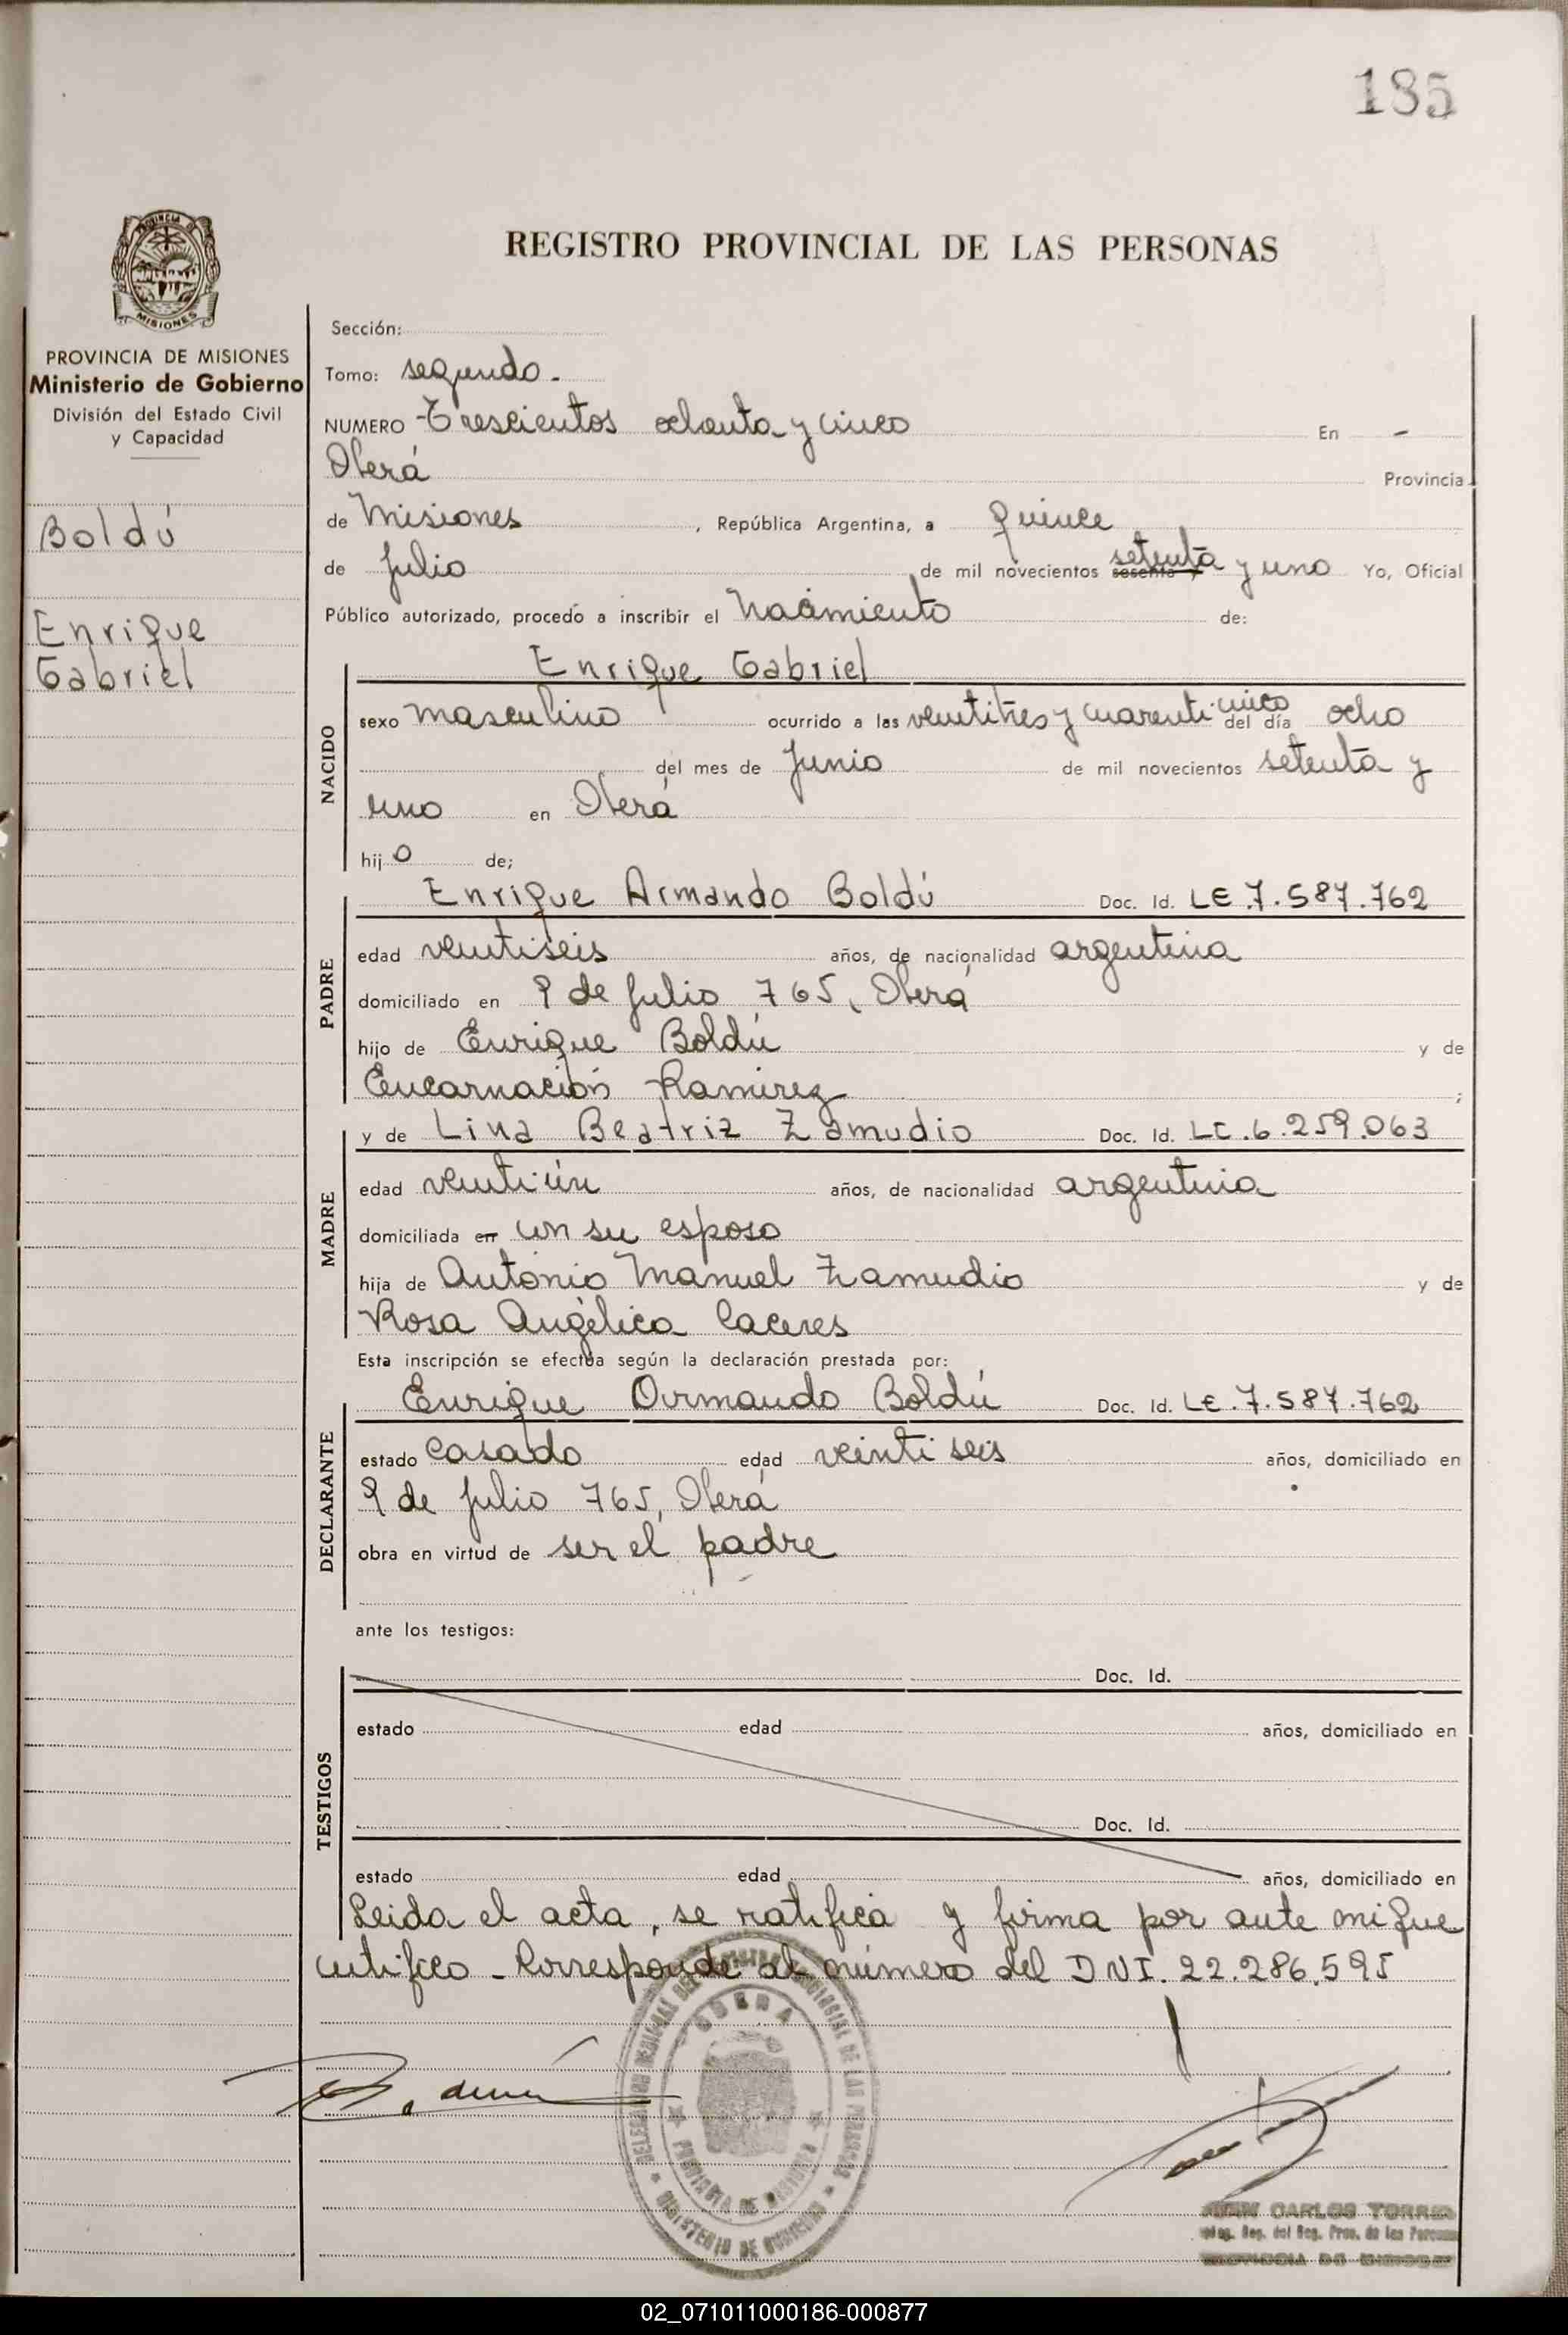 185
PROVINCIA DE
MISIONES
PROVINCIA DE MISIONES
Ministerio de Gobierno
División del Estado Civil
y Capacidad
Boldú
Enrique
Gabriel
REGISTRO PROVINCIAL DE LAS PERSONAS
Sección:
Tomo: segundo.
NUMERO Trescientos ochenta y cinco En -
Oberá Provincia
de Misiones , República Argentina, a quince
de Julio de mil novecientos sesenta y setenta y uno Yo, Oficial
Público autorizado, procedo a inscribir el Nacimiento de:
Enrique Gabriel
NACIDO
sexo masculino ocurrido a las veintitres y cuarenti cinco del día ocho
del mes de Junio de mil novecientos setenta y
uno en Oberá
hijo de;
PADRE
Enrique Armando Boldú Doc. Id. LE.7.587.762
edad veintiseis años, de nacionalidad argentina
domiciliado en 9 de Julio 765, Oberá
hijo de Enrique Boldú y de
Encarnación Ramirez ;
MADRE
y de Lina Beatriz Zamudio Doc. Id. LC.6.259.063
edad veintiún años, de nacionalidad argentina
domiciliada en con su esposo
hija de Antonio Manuel Zamudio y de
Rosa Angélica Caceres
Esta inscripción se efectúa según la declaración prestada por:
DECLARANTE
Enrique Armando Boldú Doc. Id. LE.7.587.762
estado casado edad veinti seis años, domiciliado en
9 de Julio 765, Oberá
obra en virtud de ser el padre
ante los testigos:
TESTIGOS
Doc. Id.
estado edad años, domiciliado en
Doc. Id.
estado edad años, domiciliado en
Leida el acta, se ratifica y firma por ante mi que
certifico - Corresponde al número del DNI. 22.286.595
OBERA
PROVINCIA DE MISIONES
MINISTERIO DE GOBIERNO
JUAN CARLOS TORRES
Reg. del Reg. Prov. de las Personas
PROVINCIA DE MISIONES
02_071011000186-000877